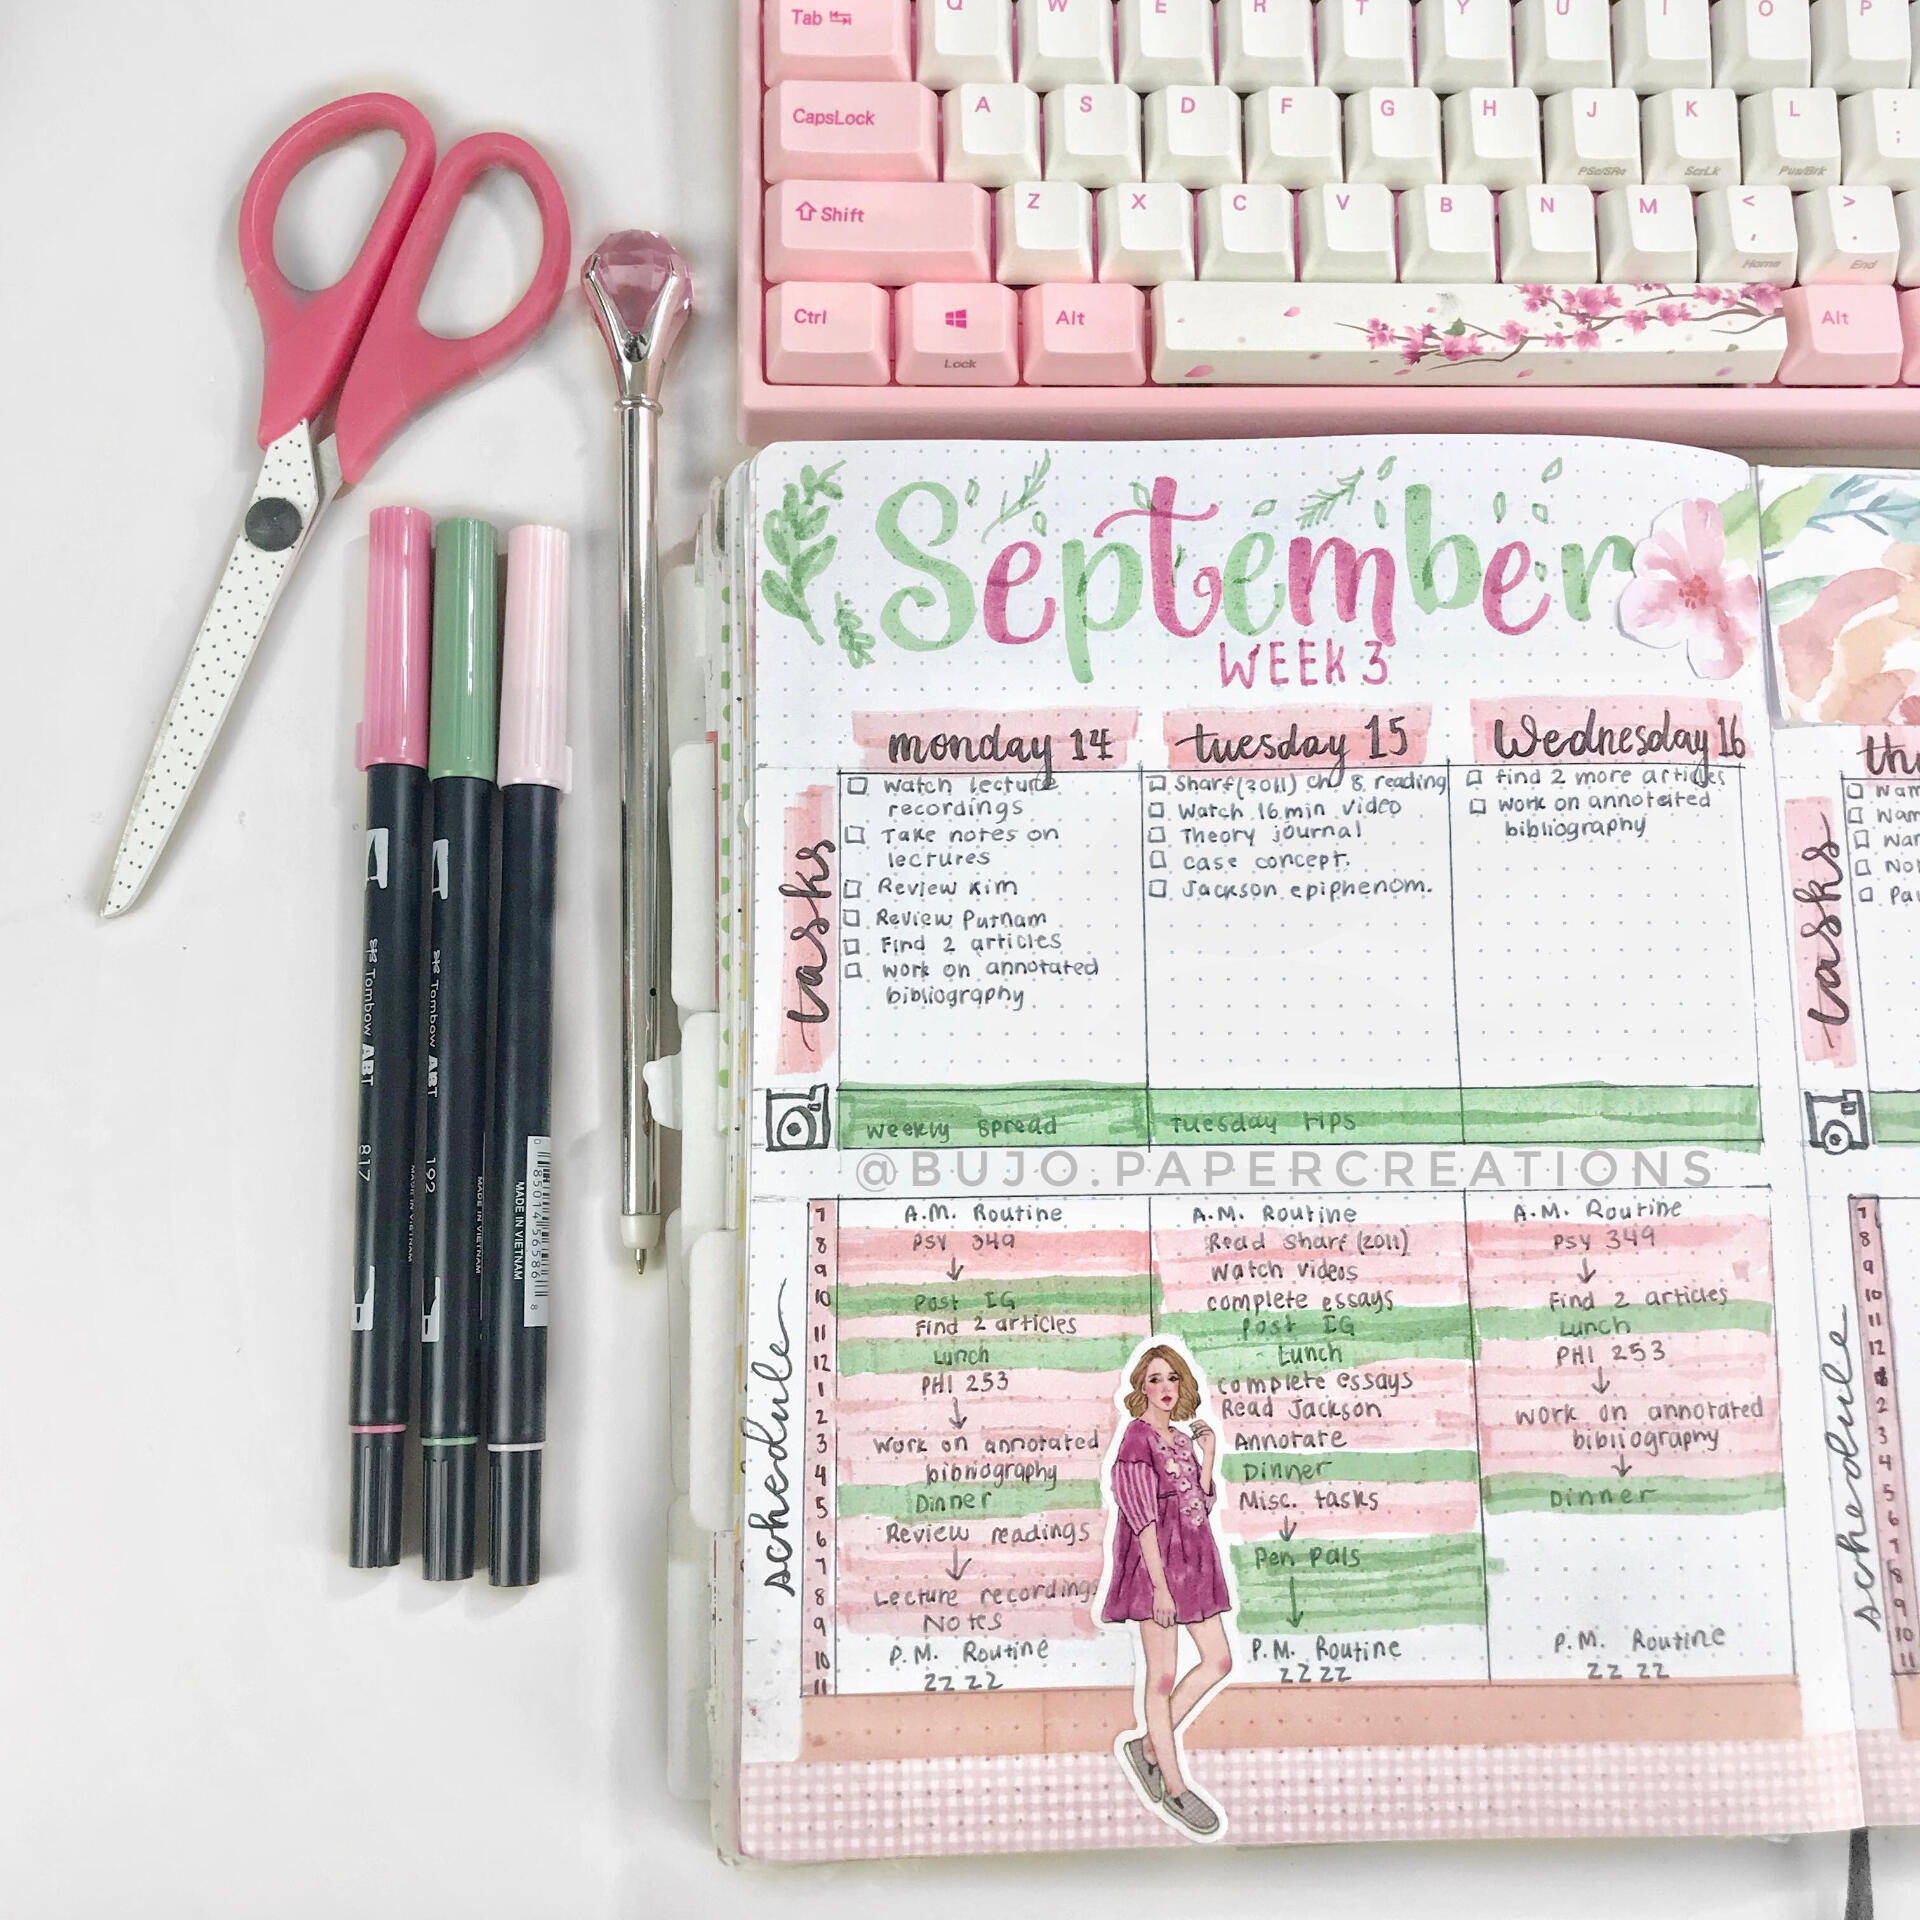 Tab
Q W E R T Y U I O P
CapsLock A S D F G H J K L : ;
PSc/SRq ScrLk Pus/Brk
Shift Z X C V B N M < , > .
Home End
Ctrl Lock Alt Alt
September
WEEK 3
monday 14
tuesday 15
Wednesday 16
tasks
Watch lecture
recordings
Take notes on
lectures
Review Kim
Review Putnam
Find 2 articles
work on annotated
bibliography
Sharf (2011) Ch 8 reading
Watch 16 min video
Theory journal
case concept.
Jackson epiphenom.
find 2 more articles
work on annotated
bibliography
tasks
weekly spread
Tuesday tips
@BUJO.PAPERCREATIONS
schedule
7
8
9
10
11
12
1
2
3
4
5
6
7
8
9
10
11
A.M. Routine
PSY 349
Post IG
Find 2 articles
Lunch
PHI 253
Work on annotated
bibliography
Dinner
Review readings
Lecture recordings
Notes
P.M. Routine
ZZZZ
A.M. Routine
Read Sharf (2011)
Watch videos
complete essays
Post IG
Lunch
complete essays
Read Jackson
Annotate
Dinner
Misc. tasks
Pen Pals
P.M. Routine
ZZZZ
A.M. Routine
PSY 349
Find 2 articles
Lunch
PHI 253
work on annotated
bibliography
Dinner
P.M. Routine
ZZ ZZ
schedule
Tombow ABT
817
MADE IN VIETNAM
Tombow ABT
192
MADE IN VIETNAM
MADE IN VIETNAM
0 85014 56586 8